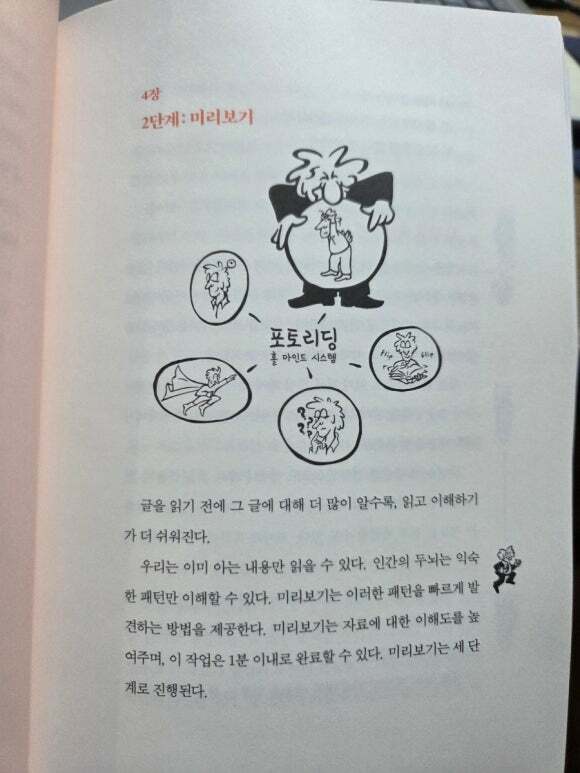 4장
2단계: 미리보기
포토리딩
홀 마인드 시스템
flip flip
???
글을 읽기 전에 그 글에 대해 더 많이 알수록, 읽고 이해하기
가 더 쉬워진다.
우리는 이미 아는 내용만 읽을 수 있다. 인간의 두뇌는 익숙
한 패턴만 이해할 수 있다. 미리보기는 이러한 패턴을 빠르게 발
견하는 방법을 제공한다. 미리보기는 자료에 대한 이해도를 높
여주며, 이 작업은 1분 이내로 완료할 수 있다. 미리보기는 세 단
계로 진행된다.